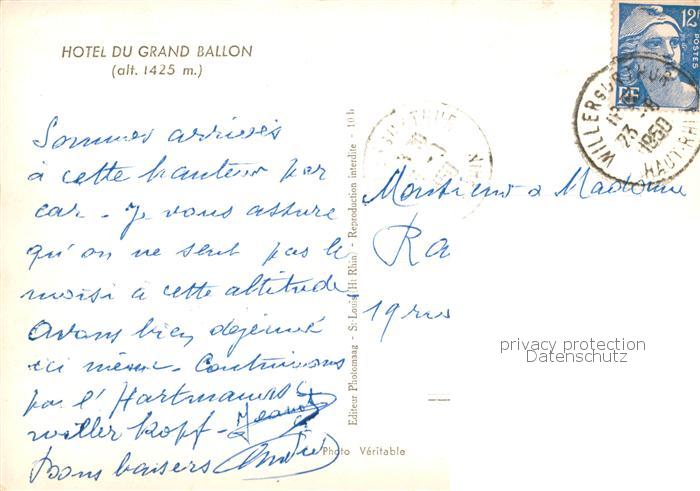 HOTEL DU GRAND BALLON
(alt. 1425 m.)
Sommes arrivés
à cette hauteur par
car. Je vous assure
qu'on ne sent pas le
moisi à cette altitude
Avons bien déjeuné
ici même. Continuons
par l'Hartmanns
willer kopf.
Bons baisers
Photo Véritable
Editeur Photomaag - St Louis (Ht Rhin) - Reproduction interdite - 10 b
12F
POSTES
RF
WILLER SUR THUR
23 -8
1950
HAUT-RHIN
Monsieur & Madame
Ra
19 rue
privacy protection
Datenschutz